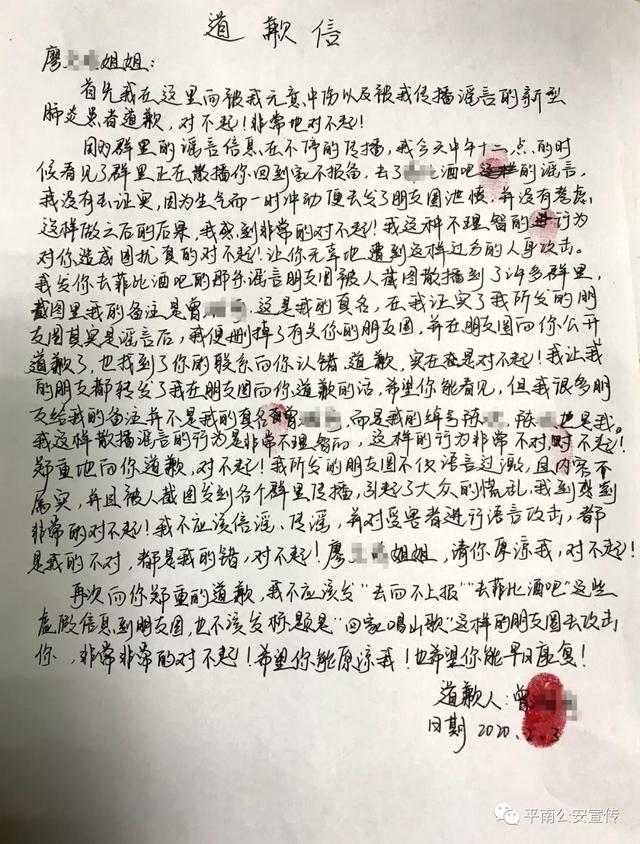 道歉信
廖姐姐:
首先我在这里向被我无意中伤以及被我传播谣言的新型
肺炎患者道歉,对不起!非常地对不起!
因为群里的谣言信息在不停的传播,我今天中午十二点的时
候看见了群里正在散播你回到家不报备,去了酒吧的谣言,
我没有去证实,因为生气而一时冲动便去发了朋友圈泄愤,并没有考虑
这样做之后的后果,我感到非常的对不起!我这种不理智的行为
对你造成困扰真的对不起!让你无辜地遭到这样过分的人身攻击。
我发你去菲比酒吧的那条谣言朋友圈被人截图散播到了许多群里,
截图里我的备注是曾,这是我的真名,在我证实了我所发的朋
友圈其实是谣言后,我便删掉了有关你的朋友圈,并在朋友圈向你公开
道歉了,也找到了你的联系向你认错,道歉,实在是对不起!我让我
的朋友都转发了我在朋友圈向你道歉的话,希望你能看见,但我很多朋
友给我的备注并不是我的真名曾,而是我的绰号陈,陈也是我。
我这样散播谣言的行为是非常不理智的,这样的行为非常不对,对不起!
郑重地向你道歉,对不起!我所发的朋友圈不仅语言过激,且内容不
属实,并且被人截图发到各个群里传播,引起了大众的慌乱,我感到
非常的对不起!我不应该信谣、传谣,并对受患者进行语言攻击,都
是我的不对,都是我的错,对不起!廖姐姐,请你原谅我,对不起!
再次向你郑重的道歉,我不应该发“去向不上报”“去菲比酒吧”这些
虚假信息到朋友圈,也不该发标题是“回家唱山歌”这样的朋友圈去攻击
你,非常非常的对不起!希望你能原谅我!也希望你能早日康复!
道歉人:曾
日期 2020.2.3
平南公安宣传